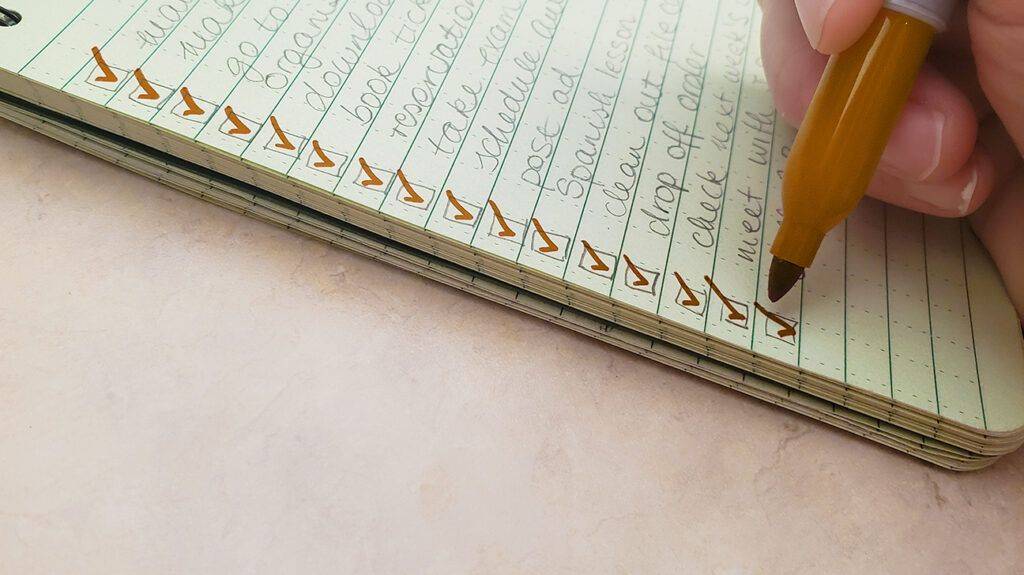 mai
make
go to
organi
downloa
book tick
reservation
take exam
schedule au
post ad
Spanish lesson
clean out file
drop off order
check next week's
meet with